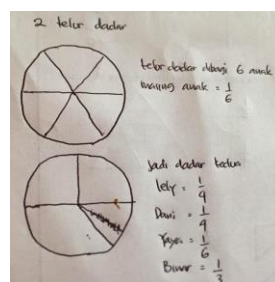 2 telur dadar
telur dadar dibagi 6 anak
masing anak = 1/6
Jadi dadar kedua
lely = 1/4
Dani = 1/4
= 1/6
= 1/3